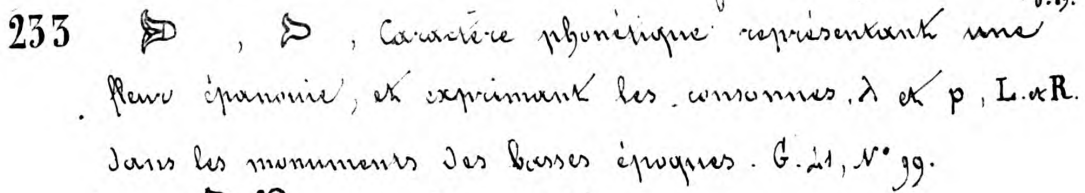 233 , , Caractère phonétique représentant une
fleur épanouie, et exprimant les consonnes, λ et ρ, L. et R.
dans les monuments des basses époques. G. 21, N° 99.